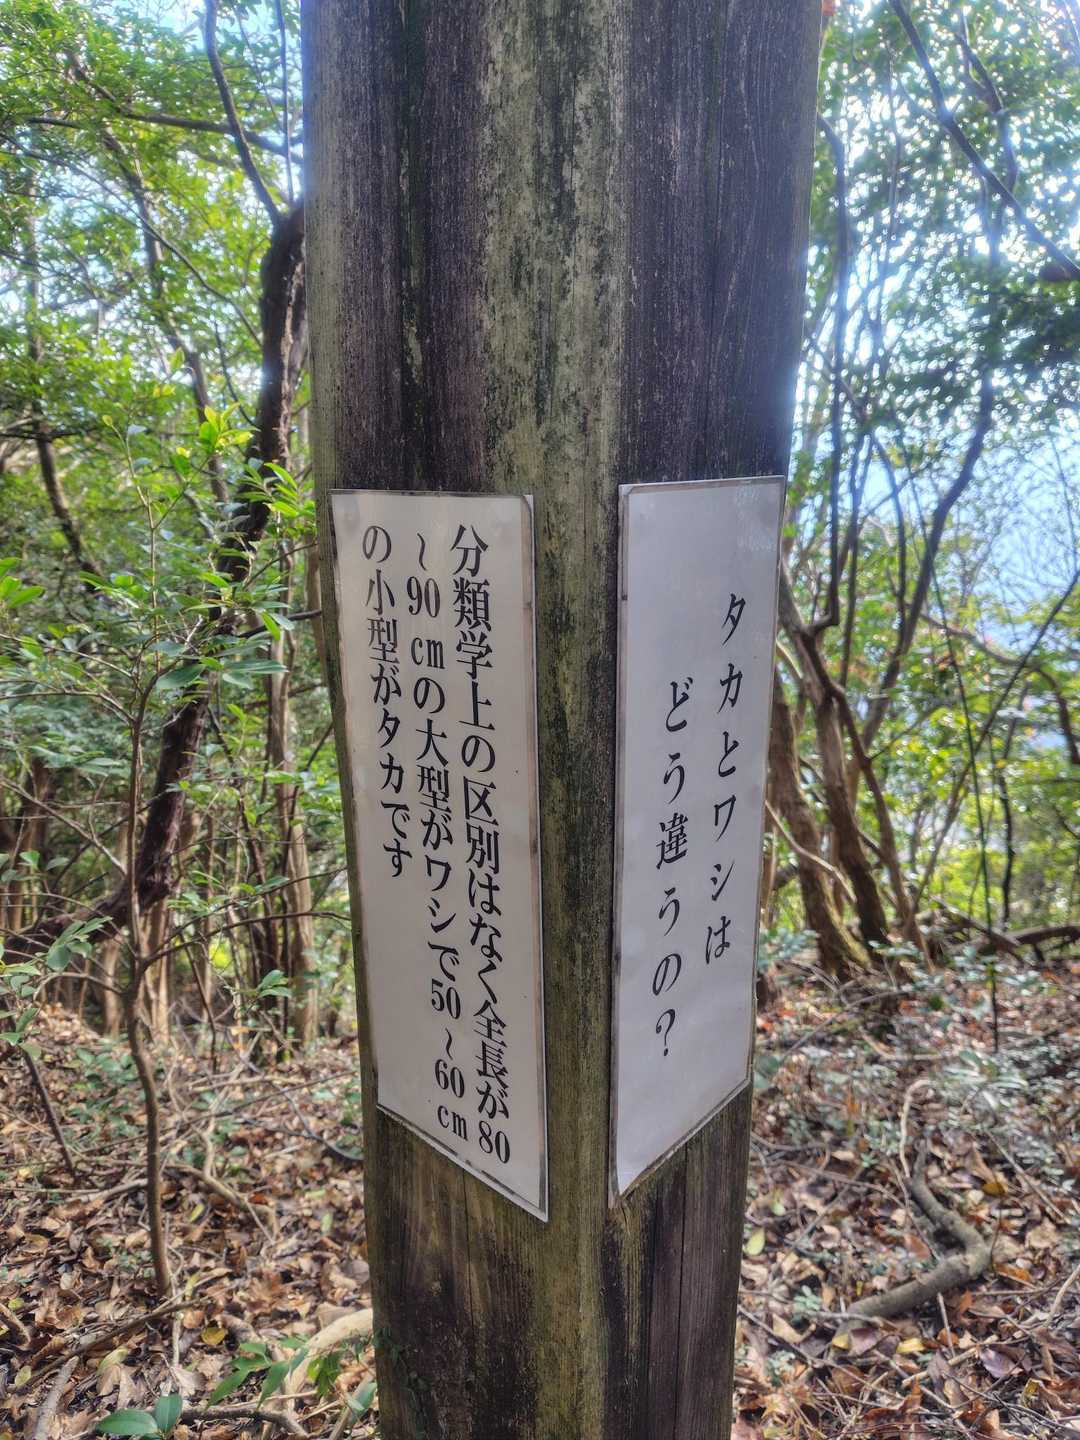 タカとワシは
どう違うの？
分類学上の区別はなく全長が80
～90㎝の大型がワシで50～60㎝
の小型がタカです